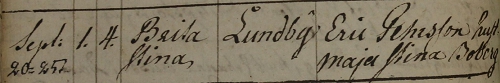 Sept: 1. 4. Brita Lundby Eric Pehrson hust
20=257 Stina, maja Stina Boberg